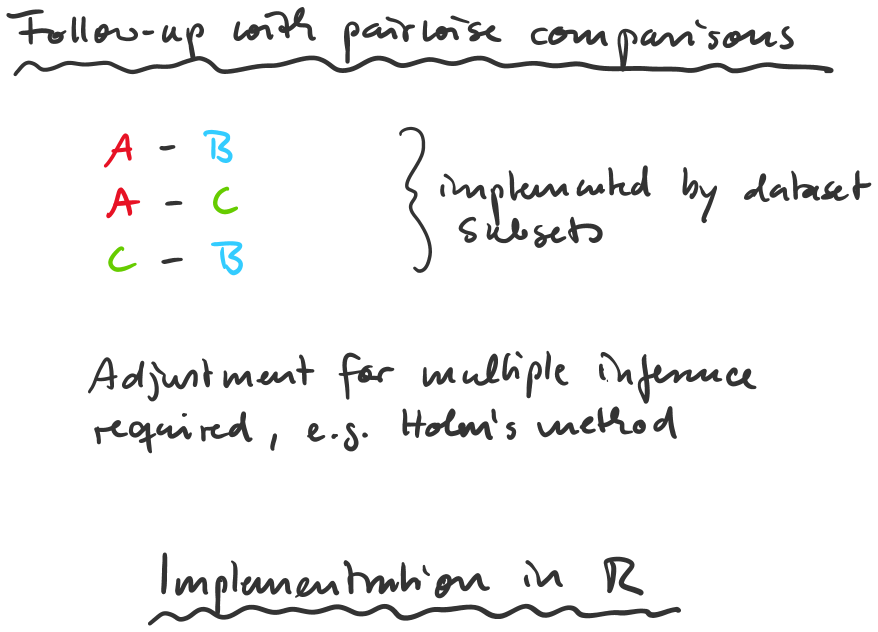 Follow-up with pairwise comparisons
A - B
A - C
C - B
implemented by dataset
subsets
Adjustment for multiple inference
required, e.g. Holm's method
Implementation in R